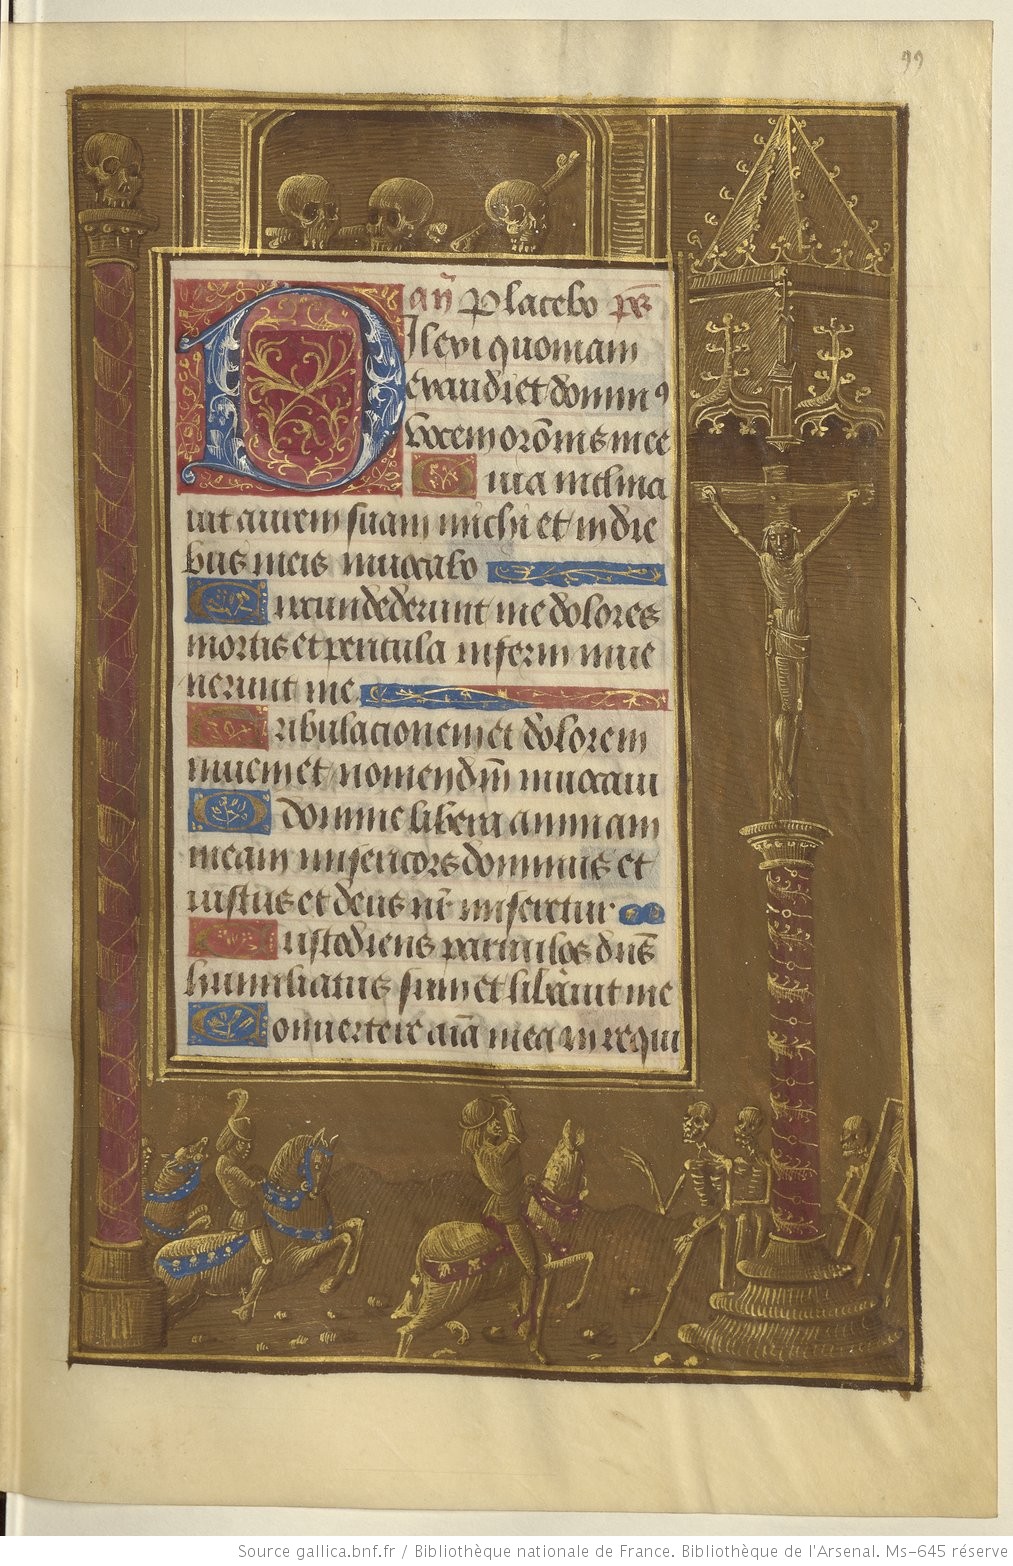 99
an̄ Placebo ps̄
Dilexi quoniam
exaudiet dominꝰ
vocem orōnis mee
Quia inclina
uit aurem suam michi et in die
bus meis inuocabo
Circundederunt me dolores
mortis et pericula inferni inue
nerunt me
Tribulacionem et dolorem
inueni et nomen dm̄ inuocaui
O domine libera animam
meam misericors dominus et
iustus et deus nr̄ miseretur
Custodiens paruulos dn̄s
humiliatus sum et libāuit me
Conuertere aīa mea in requi
Source gallica.bnf.fr / Bibliothèque nationale de France. Bibliothèque de l'Arsenal. Ms-645 réserve